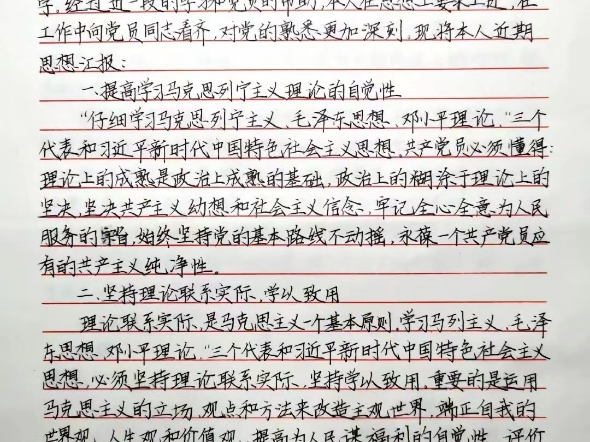 学。经过近一段的学习和党员的帮助,本人在思想上要求上进,在
工作中向党员同志看齐,对党的熟悉更加深刻。现将本人近期
思想汇报:
一、提高学习马克思列宁主义理论的自觉性
“仔细学习马克思列宁主义、毛泽东思想、邓小平理论、“三个
代表和习近平新时代中国特色社会主义思想,共产党员必须懂得:
理论上的成熟是政治上成熟的基础,政治上的糊涂于理论上的
坚决,坚决共产主义幼想和社会主义信念,牢记全心全意为人民
服务的宗旨,始终坚持党的基本路线不动摇,永葆一个共产党员应
有的共产主义纯净性。
二、坚持理论联系实际,学以致用
理论联系实际,是马克思主义一个基本原则,学习马列主义、毛泽
东思想、邓小平理论、“三个代表和习近平新时代中国特色社会主义
思想,必须坚持理论联系实际、坚持学以致用,重要的是运用
马克思主义的立场、观点和方法来改造主观世界,端正自我的
世界观、人生观和价值观,提高为人民谋福利的自觉性、评价